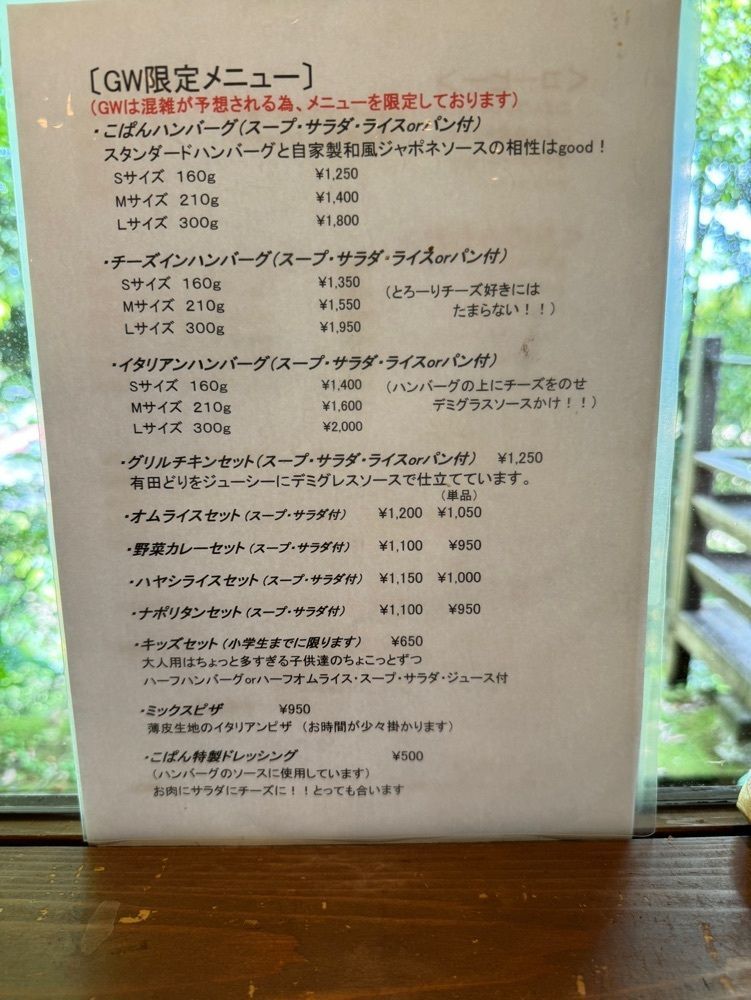 〔GW限定メニュー〕
(GWは混雑が予想される為、メニューを限定しております)
・こぱんハンバーグ(スープ・サラダ・ライスorパン付)
スタンダードハンバーグと自家製和風ジャポネソースの相性はgood！
Sサイズ 160g ¥1,250
Mサイズ 210g ¥1,400
Lサイズ 300g ¥1,800
・チーズインハンバーグ(スープ・サラダ・ライスorパン付)
Sサイズ 160g ¥1,350 (とろーりチーズ好きには
Mサイズ 210g ¥1,550 たまらない！！)
Lサイズ 300g ¥1,950
・イタリアンハンバーグ(スープ・サラダ・ライスorパン付)
Sサイズ 160g ¥1,400 (ハンバーグの上にチーズをのせ
Mサイズ 210g ¥1,600 デミグラスソースかけ！！)
Lサイズ 300g ¥2,000
・グリルチキンセット(スープ・サラダ・ライスorパン付) ¥1,250
有田どりをジューシーにデミグレスソースで仕立てています。
(単品)
・オムライスセット(スープ・サラダ付) ¥1,200 ¥1,050
・野菜カレーセット(スープ・サラダ付) ¥1,100 ¥950
・ハヤシライスセット(スープ・サラダ付) ¥1,150 ¥1,000
・ナポリタンセット(スープ・サラダ付) ¥1,100 ¥950
・キッズセット(小学生までに限ります) ¥650
大人用はちょっと多すぎる子供達のちょこっとずつ
ハーフハンバーグorハーフオムライス・スープ・サラダ・ジュース付
・ミックスピザ ¥950
薄皮生地のイタリアンピザ (お時間が少々掛かります)
・こぱん特製ドレッシング ¥500
(ハンバーグのソースに使用しています)
お肉にサラダにチーズに！！とっても合います